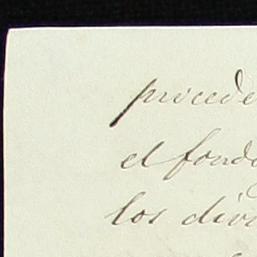 procede
el fondo
los divi